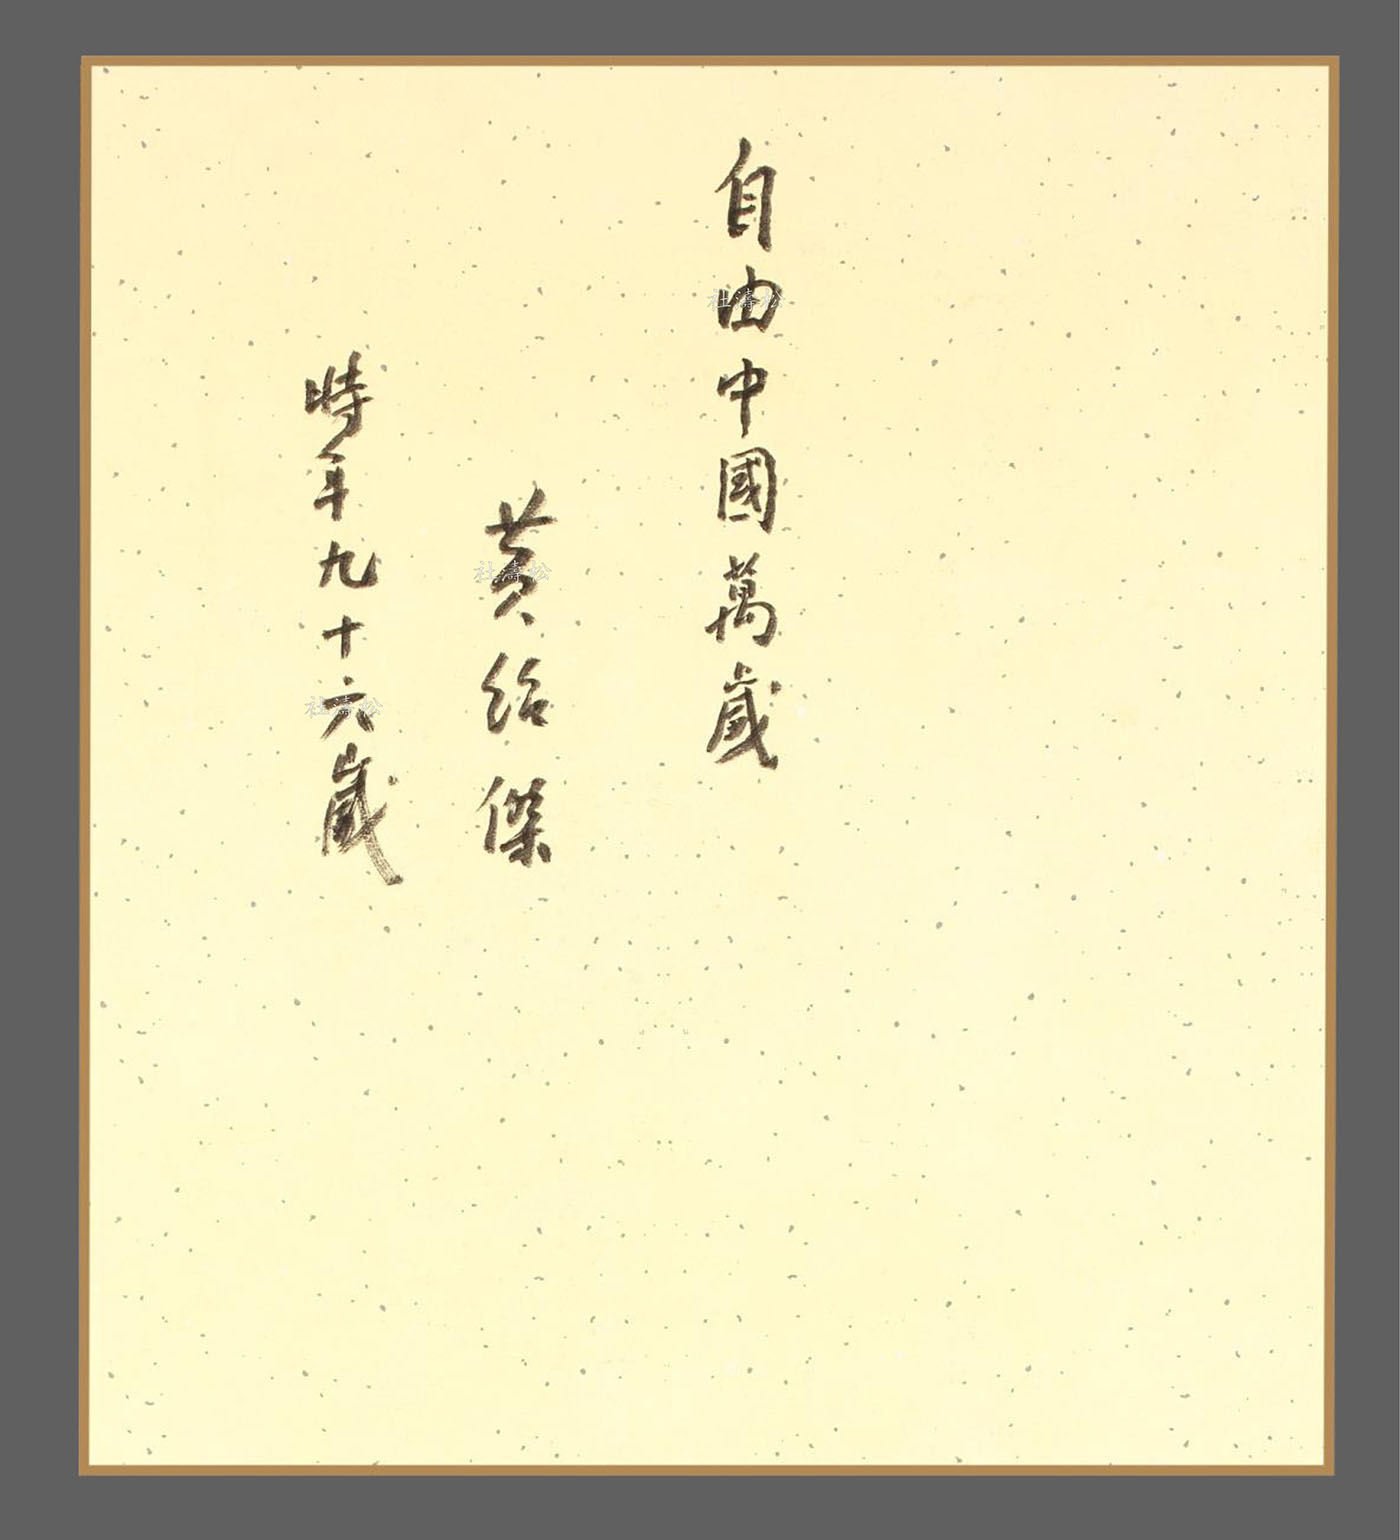 自由中國萬歲
黃紹傑
時年九十六歲
杜濤松
杜濤松
杜濤松